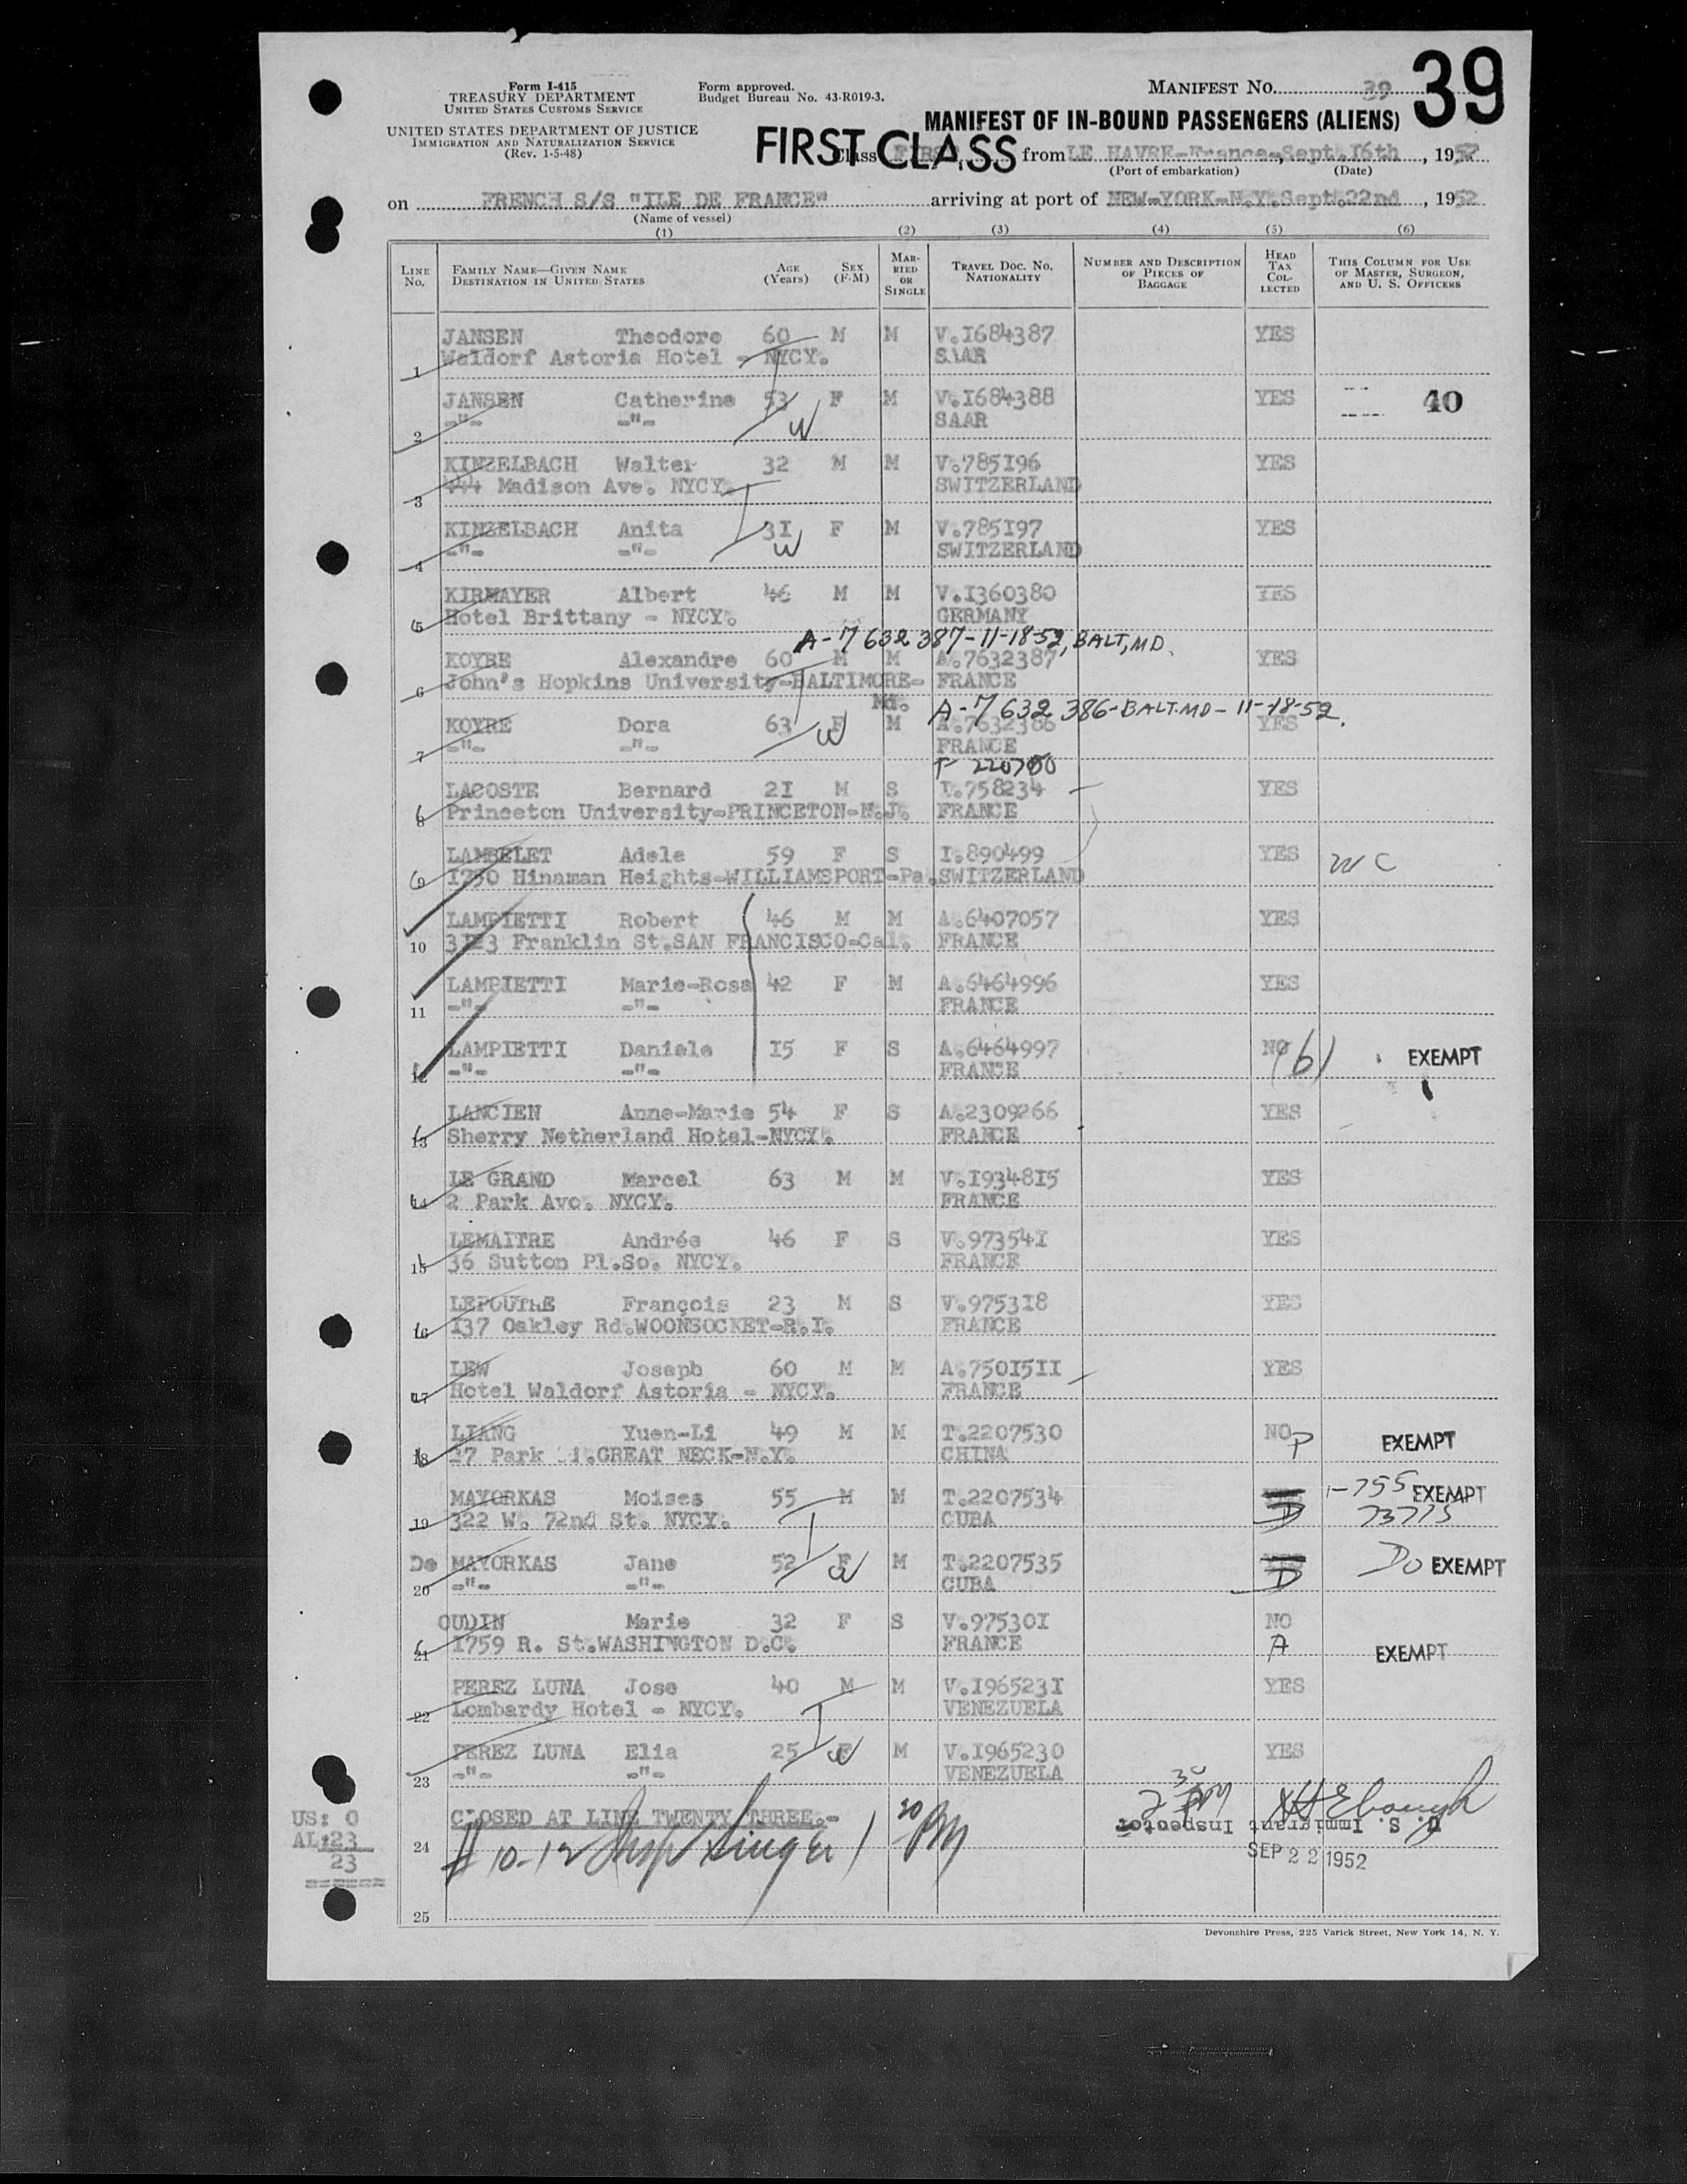 39
Form I-415
TREASURY DEPARTMENT
UNITED STATES CUSTOMS SERVICE
UNITED STATES DEPARTMENT OF JUSTICE
IMMIGRATION AND NATURALIZATION SERVICE
(Rev. 1-5-48)
Form approved.
Budget Bureau No. 43-R019-3.
MANIFEST NO. 39
MANIFEST OF IN-BOUND PASSENGERS (ALIENS)
FIRST CLASS
Class FIRST from LE HAVRE-France-, Sept. 16th, 1952
(Port of embarkation) (Date)
on FRENCH S/S "ILE DE FRANCE" arriving at port of NEW-YORK-N.Y. Sept. 22nd, 1952
(Name of vessel)
(1) (2) (3) (4) (5) (6)
LINE No. FAMILY NAME—GIVEN NAME DESTINATION IN UNITED STATES AGE (Years) SEX (F-M) MARRIED OR SINGLE TRAVEL DOC. NO. NATIONALITY NUMBER AND DESCRIPTION OF PIECES OF BAGGAGE HEAD TAX COLLECTED THIS COLUMN FOR USE OF MASTER, SURGEON, AND U. S. OFFICERS
JANSEN Theodore 60 M M V.I684387 YES
1 Waldorf Astoria Hotel - NYCY. SAAR
JANSEN Catherine 53 F M V.I684388 YES 40
2 -"- -"- W SAAR
KINZELBACH Walter 32 M M V.785I96 YES
3 444 Madison Ave. NYCY. SWITZERLAND
KINZELBACH Anita 3I F M V.785I97 YES
4 -"- -"- W SWITZERLAND
KIRMAYER Albert 46 M M V.I360380 YES
5 Hotel Brittany - NYCY. GERMANY
A-7 632 387-11-18-52, BALT, MD.
KOYRE Alexandre 60 M M A.7632387 YES
6 John's Hopkins University-BALTIMORE- FRANCE
Md.
A-7 632 386-BALT.MD-11-18-52.
KOYRE Dora 63 F M A.7632386 YES
7 -"- -"- W FRANCE
LACOSTE Bernard 2I M S I.758234 YES
8 Princeton University-PRINCETON-N.J. FRANCE
LAMBELET Adele 59 F S I.890499 YES
9 I730 Hinaman Heights-WILLIAMSPORT-Pa. SWITZERLAND
LAMPIETTI Robert 46 M M A.6407057 YES
10 3I23 Franklin St.SAN FRANCISCO-Cal. FRANCE
LAMPIETTI Marie-Rosa 42 F M A.6464996 YES
11 -"- -"- FRANCE
LAMPIETTI Daniele I5 F S A.6464997 NO (b) EXEMPT
12 -"- -"- FRANCE
LANCIEN Anne-Marie 54 F S A.2309266 YES
13 Sherry Netherland Hotel-NYCY. FRANCE
LE GRAND Marcel 63 M M V.I9348I5 YES
14 2 Park Ave. NYCY. FRANCE
LEMAITRE Andrée 46 F S V.97354I YES
15 36 Sutton Pl.So. NYCY. FRANCE
LEPOUTRE François 23 M S V.9753I8 YES
16 I37 Oakley Rd.WOONSOCKET-R.I. FRANCE
LEW Joseph 60 M M A.750I5II YES
17 Hotel Waldorf Astoria - NYCY. FRANCE
LIANG Yuen-Li 49 M M T.2207530 NO P EXEMPT
18 27 Park GREAT NECK-N.Y. CHINA
MAYORKAS Moises 55 M M T.2207534 D 1-755 EXEMPT
19 322 W. 72nd St. NYCY. CUBA 73775
De MAYORKAS Jane 52 F M T.2207535 D Do EXEMPT
20 -"- -"- W CUBA
OUDIN Marie 32 F S V.97530I NO
21 I759 R. St.WASHINGTON D.C. FRANCE A EXEMPT
PEREZ LUNA Jose 40 M M V.I96523I YES
22 Lombardy Hotel - NYCY. VENEZUELA
PEREZ LUNA Elia 25 F M V.I965230 YES
23 -"- -"- W VENEZUELA
US: 0
AL:23
23
======
24 CLOSED AT LINE TWENTY THREE.-
# 10-12 Insp Singer
U. S. Immigrant Inspector
SEP 22 1952
25
Devonshire Press, 225 Varick Street, New York 14, N. Y.